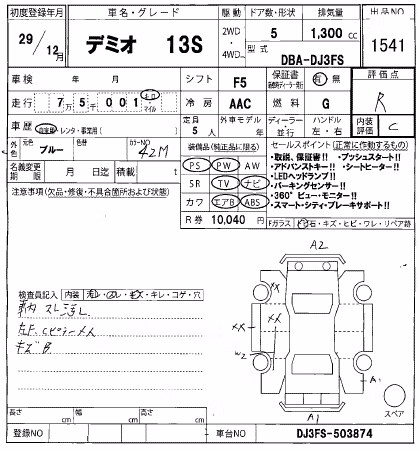 初度登録年月 車名・グレード 駆動 ドア数・形状 排気量 出品NO
29/12月 デミオ 13S 2WD・4WD 5 1,300 cc 1541
型式 DBA-DJ3FS
車検 年 月 シフト F5 保証書 有 無 評価点
走行 7万5千001 キロ・マイル 冷房 AAC 燃料 G R
車歴 自家用・レンタ・事業用( ) 定員 5人 外車モデル 年 ディーラー 並行 ハンドル 左・右 内装評価 C
外色 元色 ブルー カラーNO 42M 装備品(純正品に限る) セールスポイント(正常に作動するもの)
・取説、保証書!! ・プッシュスタート!!
・アドバンストキー!! ・シートヒーター!!
・LEDヘッドランプ!!
・パーキングセンサー!!
・360° ビュー・モニター!!
・スマート・シティ・ブレーキサポート!!
名義変更期限 月 日迄 積載 t
PS PW AW
SR TV ナビ
カワ エアB ABS
R券 10,040 円
注意事項(欠品・修復・不具合箇所および状態)
Fガラス 石・キズ・ヒビ・ワレ・リペア跡
A2
XX
XX
XX
W2
A1
A1
スペア
検査員記入 内装
・キレ・コゲ・穴
キズB
長さ cm 幅 cm 高さ cm
登録NO 車台NO DJ3FS-503874